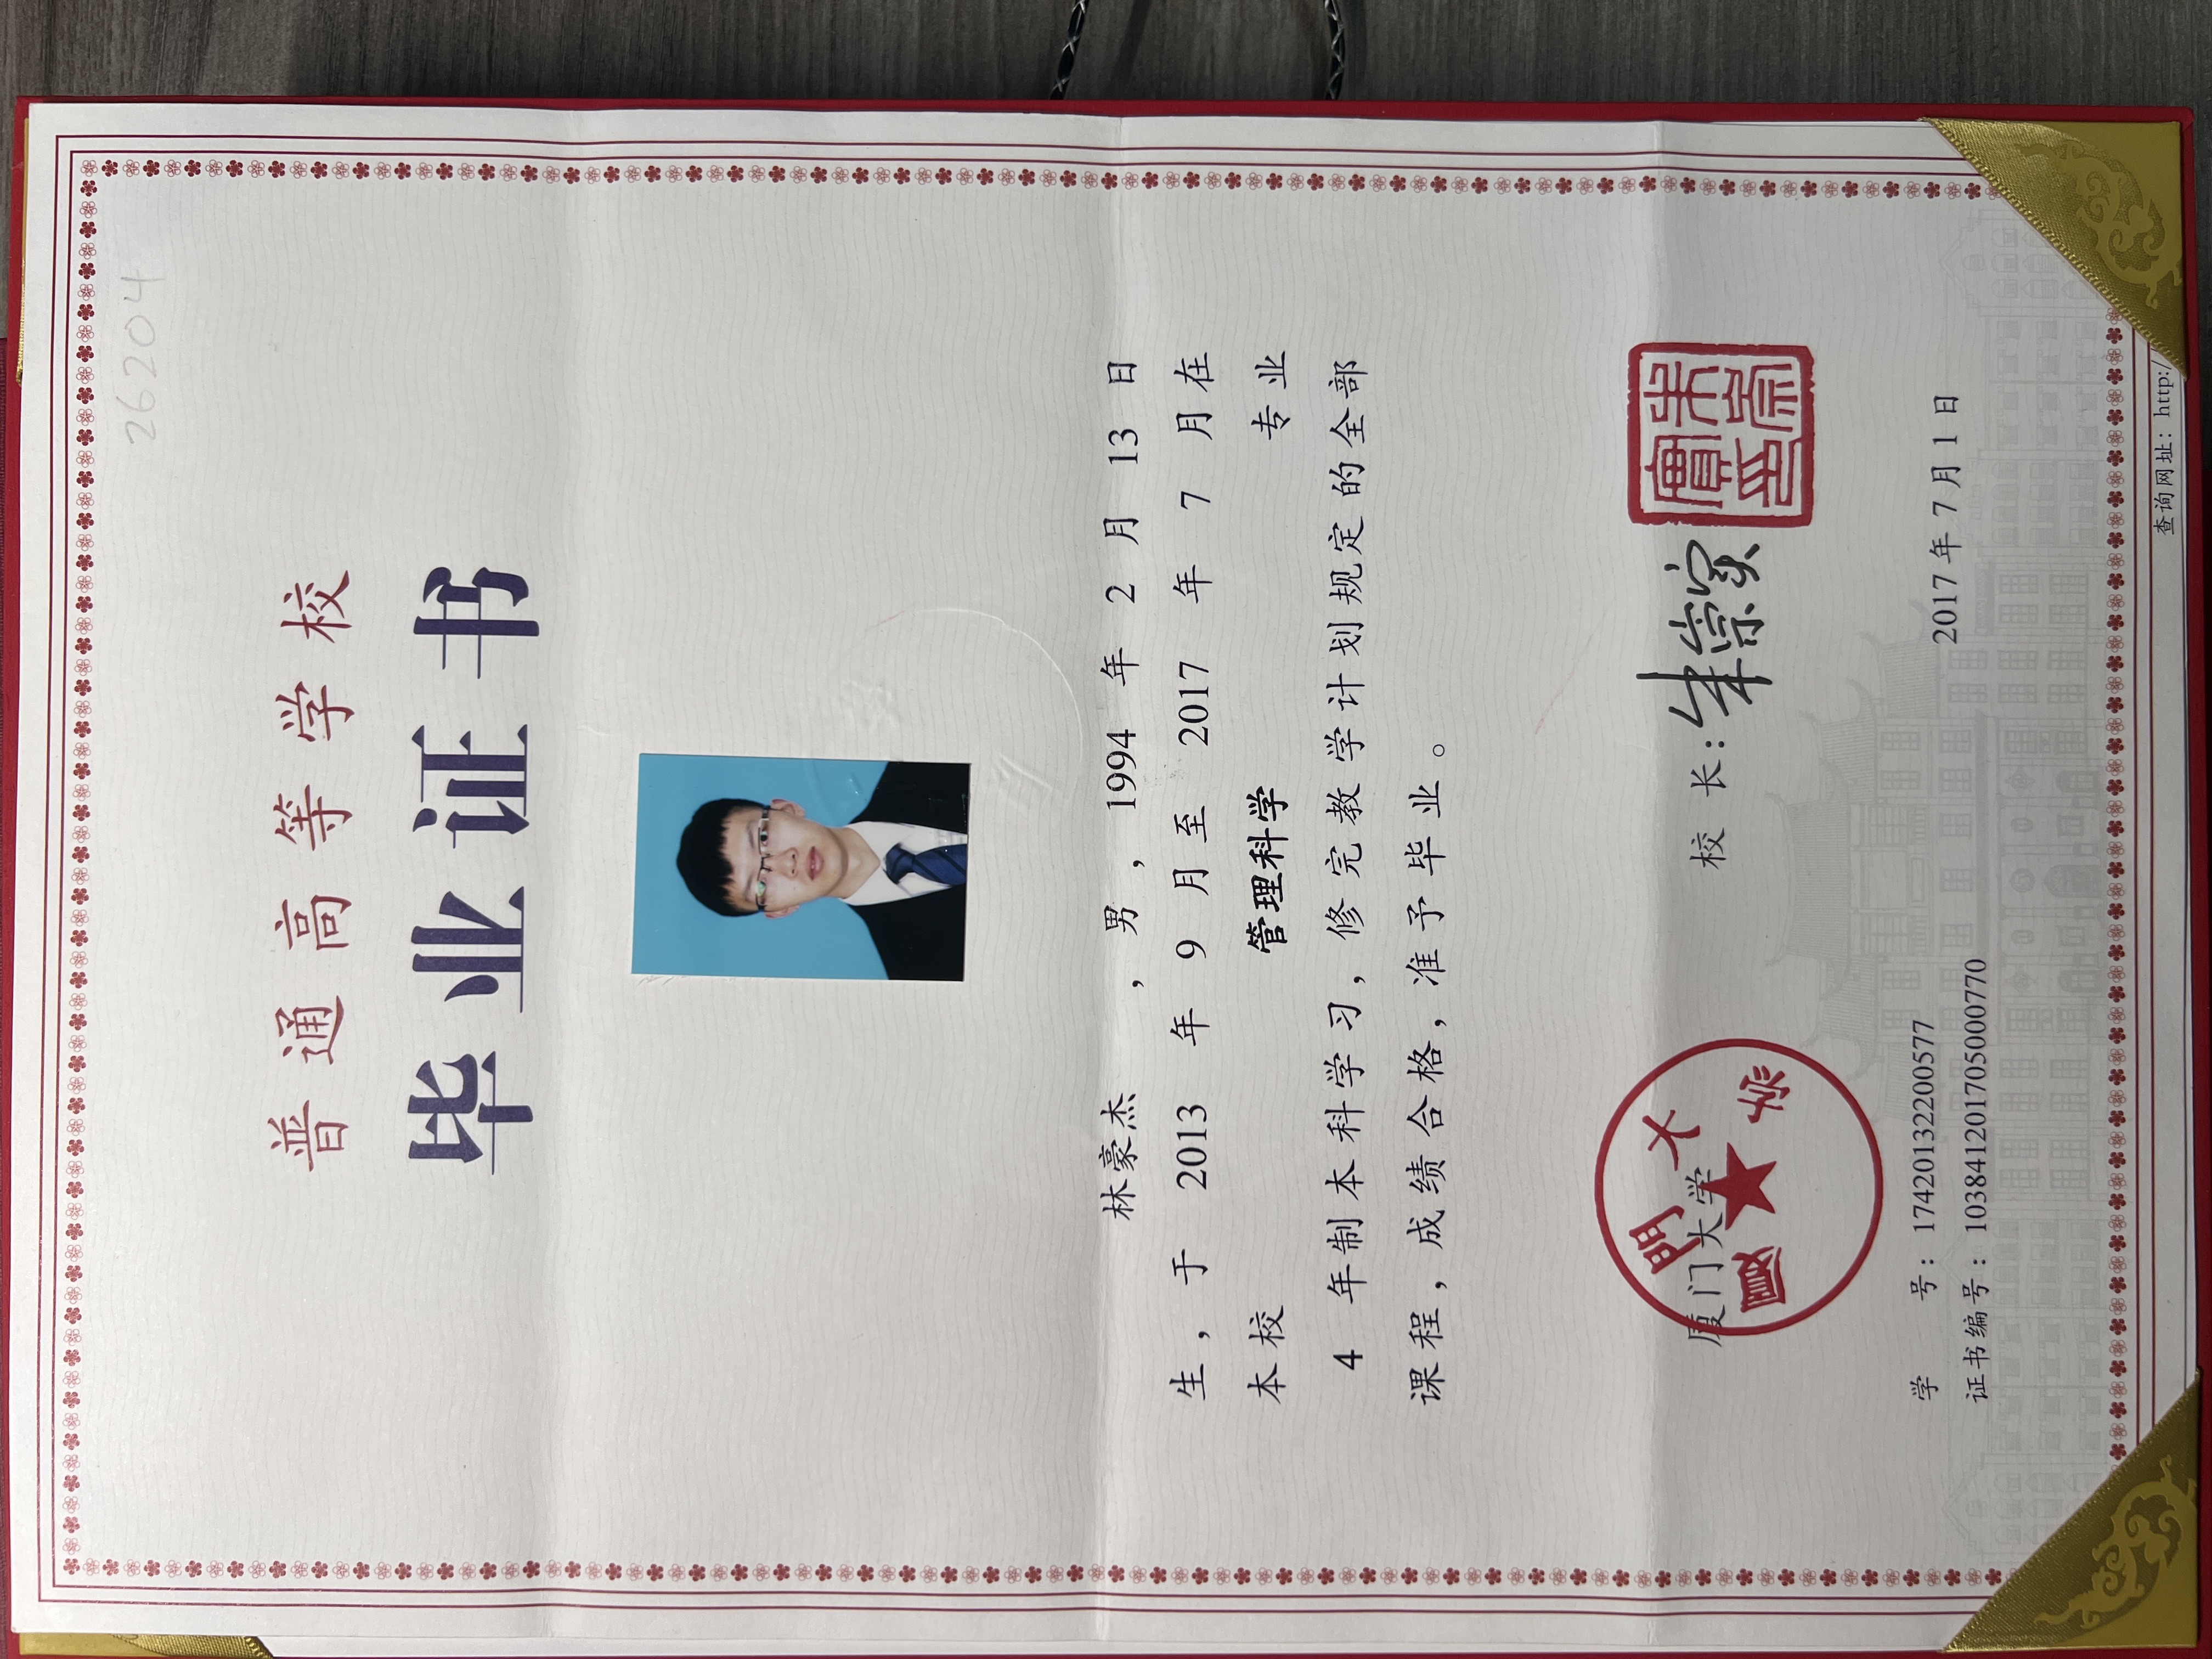 26204
普通高等学校
毕业证书
林豪杰 ，男，1994 年 2 月 13 日
生，于 2013 年 9 月至 2017 年 7 月在
本校 管理科学 专业
4 年制本科学习，修完教学计划规定的全部
课程，成绩合格，准予毕业。
厦门大学
校 长：朱崇实
学 号：17420132200577
证书编号：103841201705000770
2017 年 7 月 1 日
查询网址：http:/